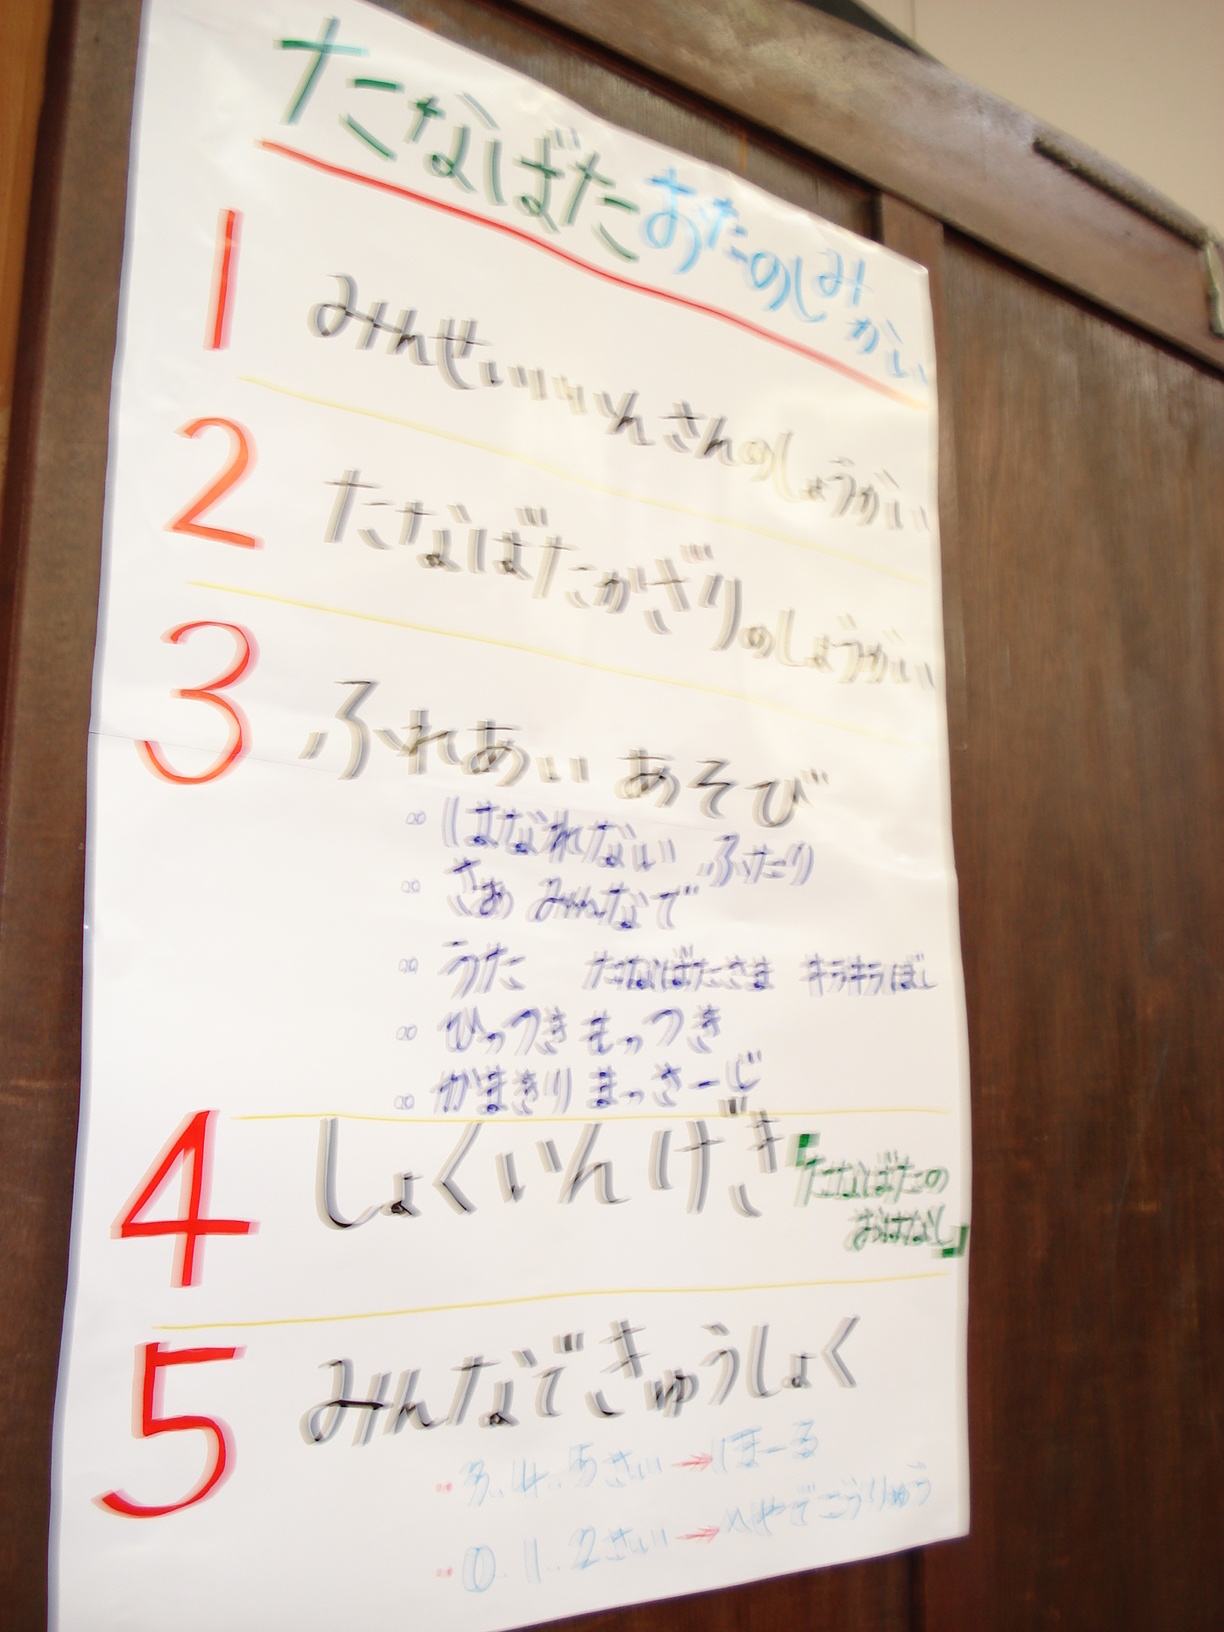 たなばたおたのしみかい
1 みんせいいいんさんのしょうかい
2 たなばたかざりのしょうかい
3 ふれあい あそび
・はなれない ふたり
・さあ みんなで
・うた たなばたさま キラキラぼし
・ひっつきもっつき
・かまきり まっさーじ
4 しょくいんげき『たなばたの
おはなし』
5 みんなできゅうしょく
・3.4.5さい→ほーる
・0.1.2さい→へやでごうりゅう